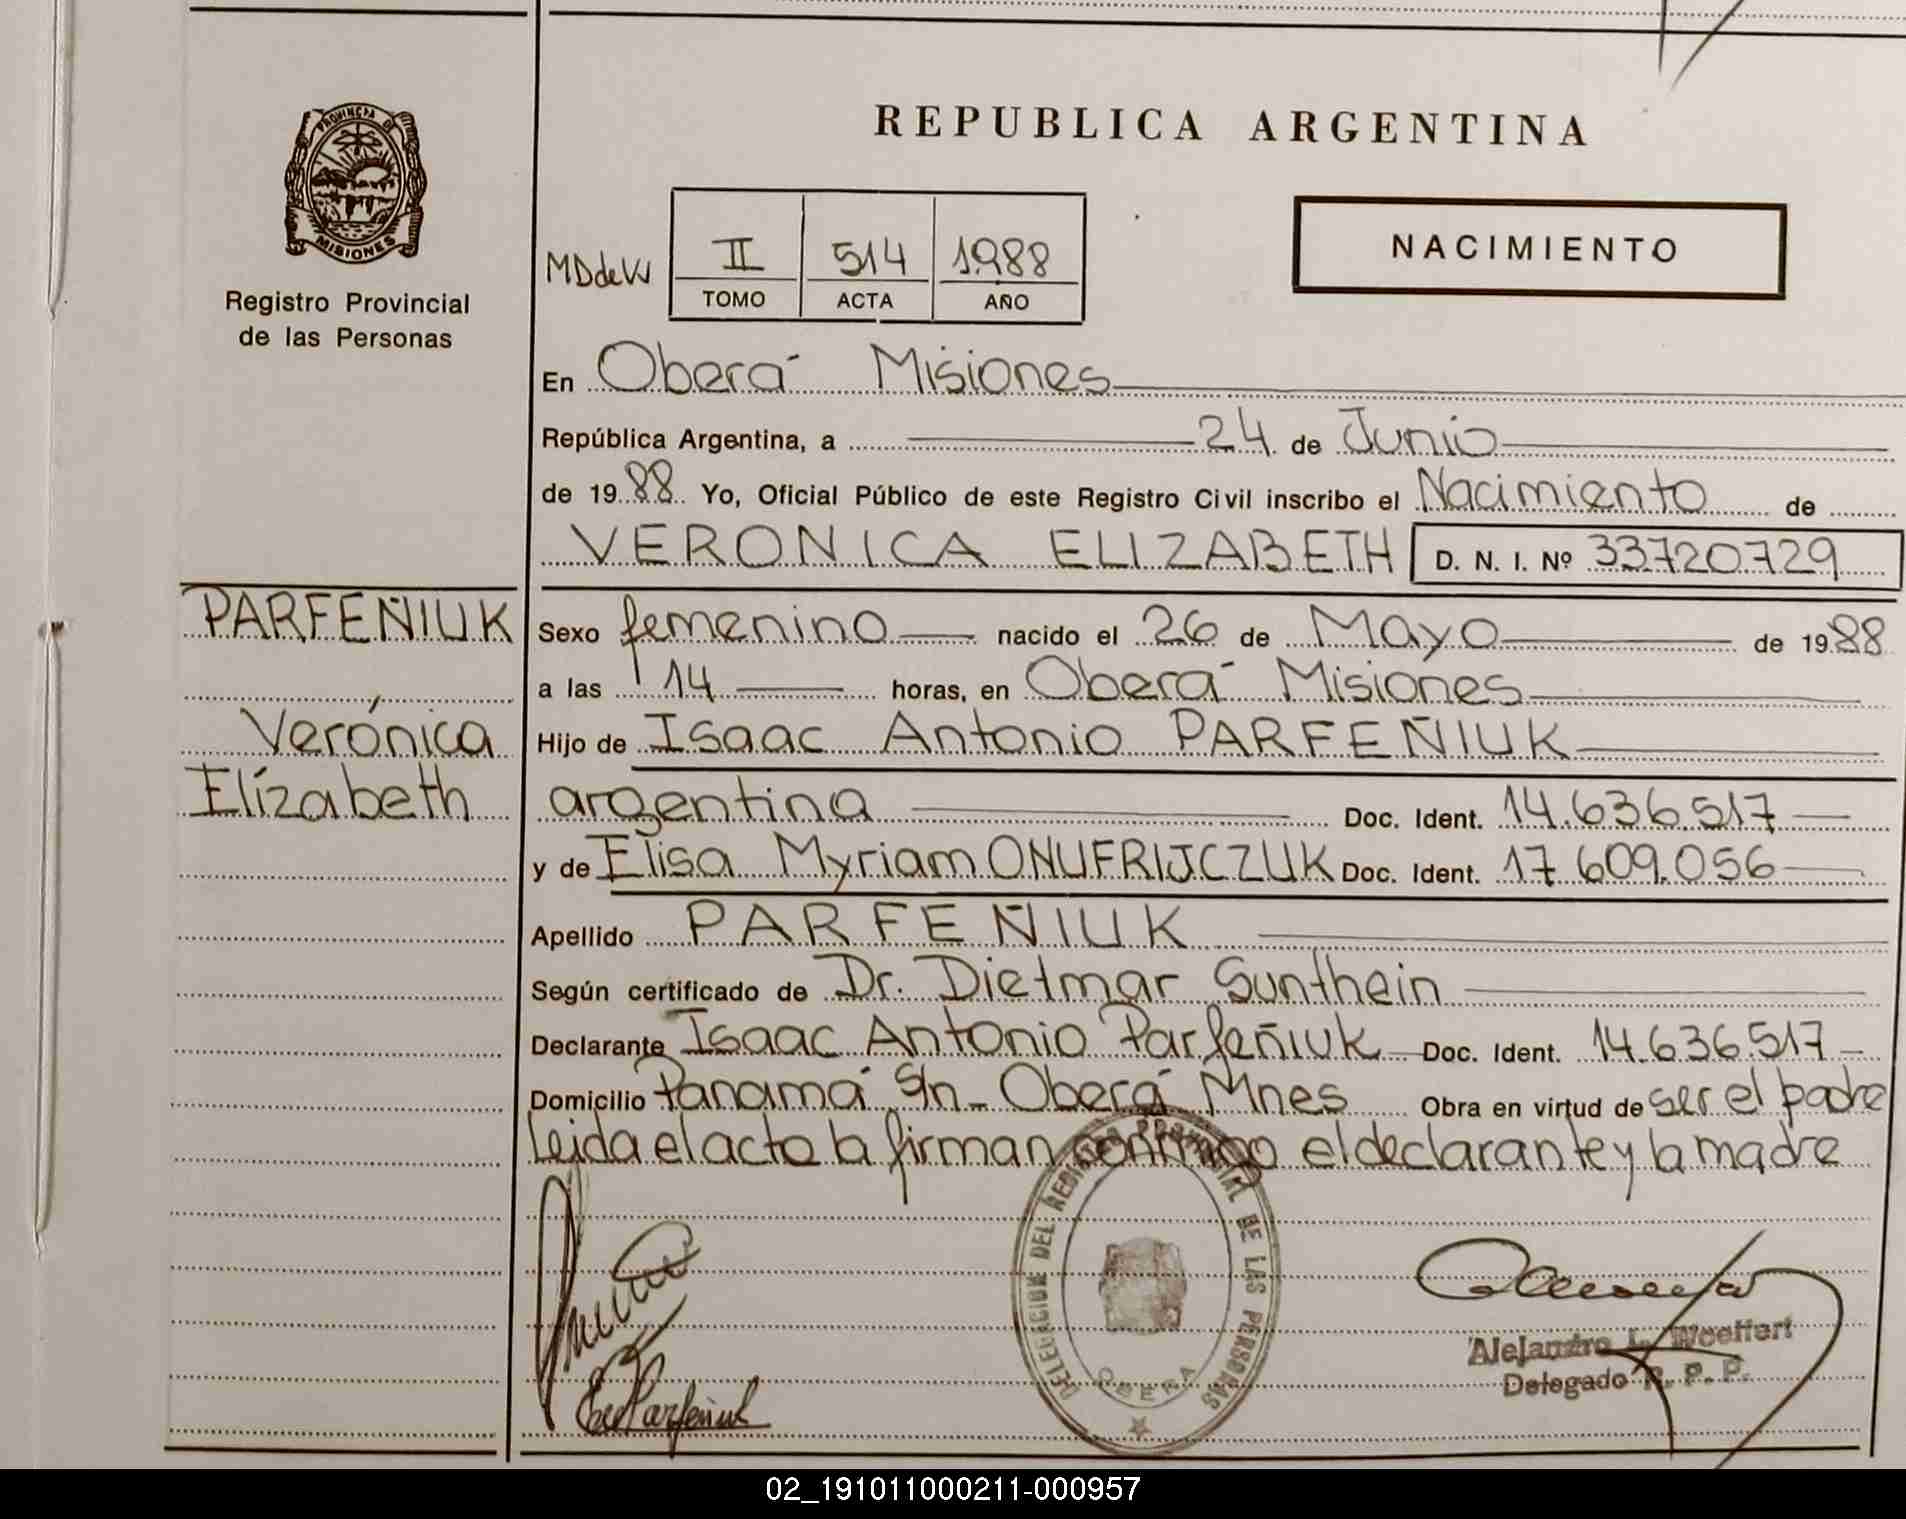 REPUBLICA ARGENTINA
PROVINCIA DE
MISIONES
Registro Provincial
de las Personas
MDdeW
II 514 1988
TOMO ACTA AÑO
NACIMIENTO
En Oberá Misiones
República Argentina, a 24 de Junio
de 1988 Yo, Oficial Público de este Registro Civil inscribo el Nacimiento de
VERONICA ELIZABETH D. N. I. Nº 33720729
PARFEÑIUK
Verónica
Elízabeth
Sexo femenino nacido el 26 de Mayo de 1988
a las 14 horas, en Oberá Misiones
Hijo de Isaac Antonio PARFEÑIUK
argentina Doc. Ident. 14.636.517
y de Elisa Myriam ONUFRIJCZUK Doc. Ident. 17.609.056
Apellido PARFEÑIUK
Según certificado de Dr. Dietmar Sunthein
Declarante Isaac Antonio Parfeñiuk Doc. Ident. 14.636.517
Domicilio Panamá S/n - Oberá Mnes Obra en virtud de ser el padre
Leida el acto la firman conmigo el declarante y la madre
DELEGACION DEL REGISTRO PROVINCIAL DE LAS PERSONAS
OBERA
Parfeñiuk
Alejandro L. Woeffert
Delegado R. P. P.
02_191011000211-000957